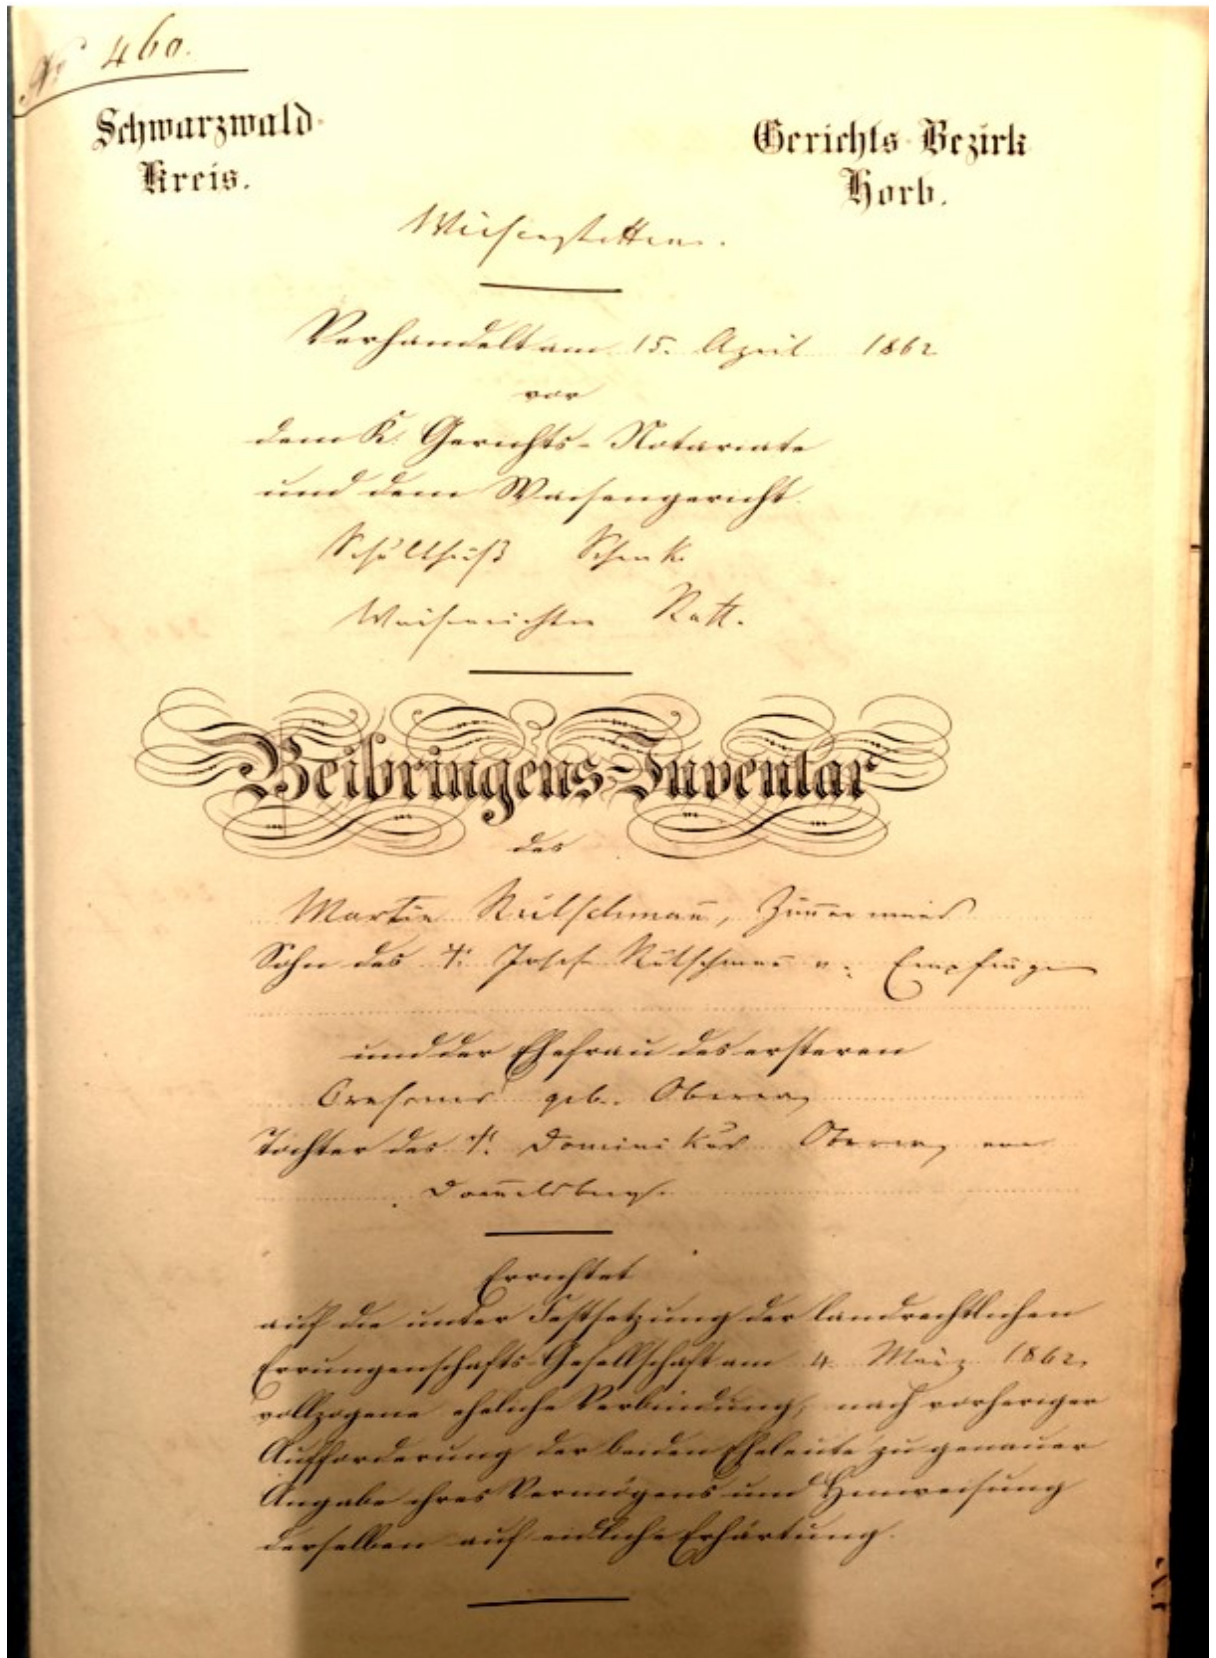 No 460.
Schwarzwald-
Kreis.
Gerichts-Bezirk
Horb.
Wiesenstetten.
Verhandelt am 15. April 1862
vor
dem K. Gerichts-Notariate
und dem Waisengericht.
Schultheiß Schenk.
Waisenrichter Katt.
Beibringens-Inventar
des
Martin Rütschmañ,
Sohn des †. Josef Rütschmañ v. Empfingen
und der Ehefrau des ersteren
geb.
Tochter des †. Dominikus
Errichtet
auf die unter Festsetzung der landrechtlichen
Errungenschafts-Gesellschaft am 4. März 1862,
vollzogene eheliche Verbindung, nach vorheriger
Aufforderung der beiden Eheleute zu genauer
Angabe ihres Vermögens und Hinweisung
derselben auf eidliche Erhärtung.